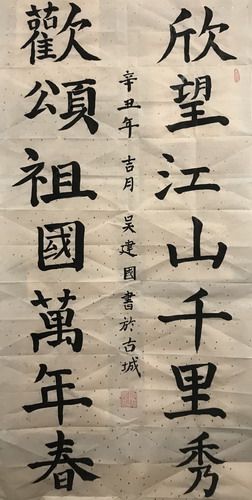 欣望江山千里秀
歡頌祖國萬年春
辛丑年 吉月 吴建國書於古城